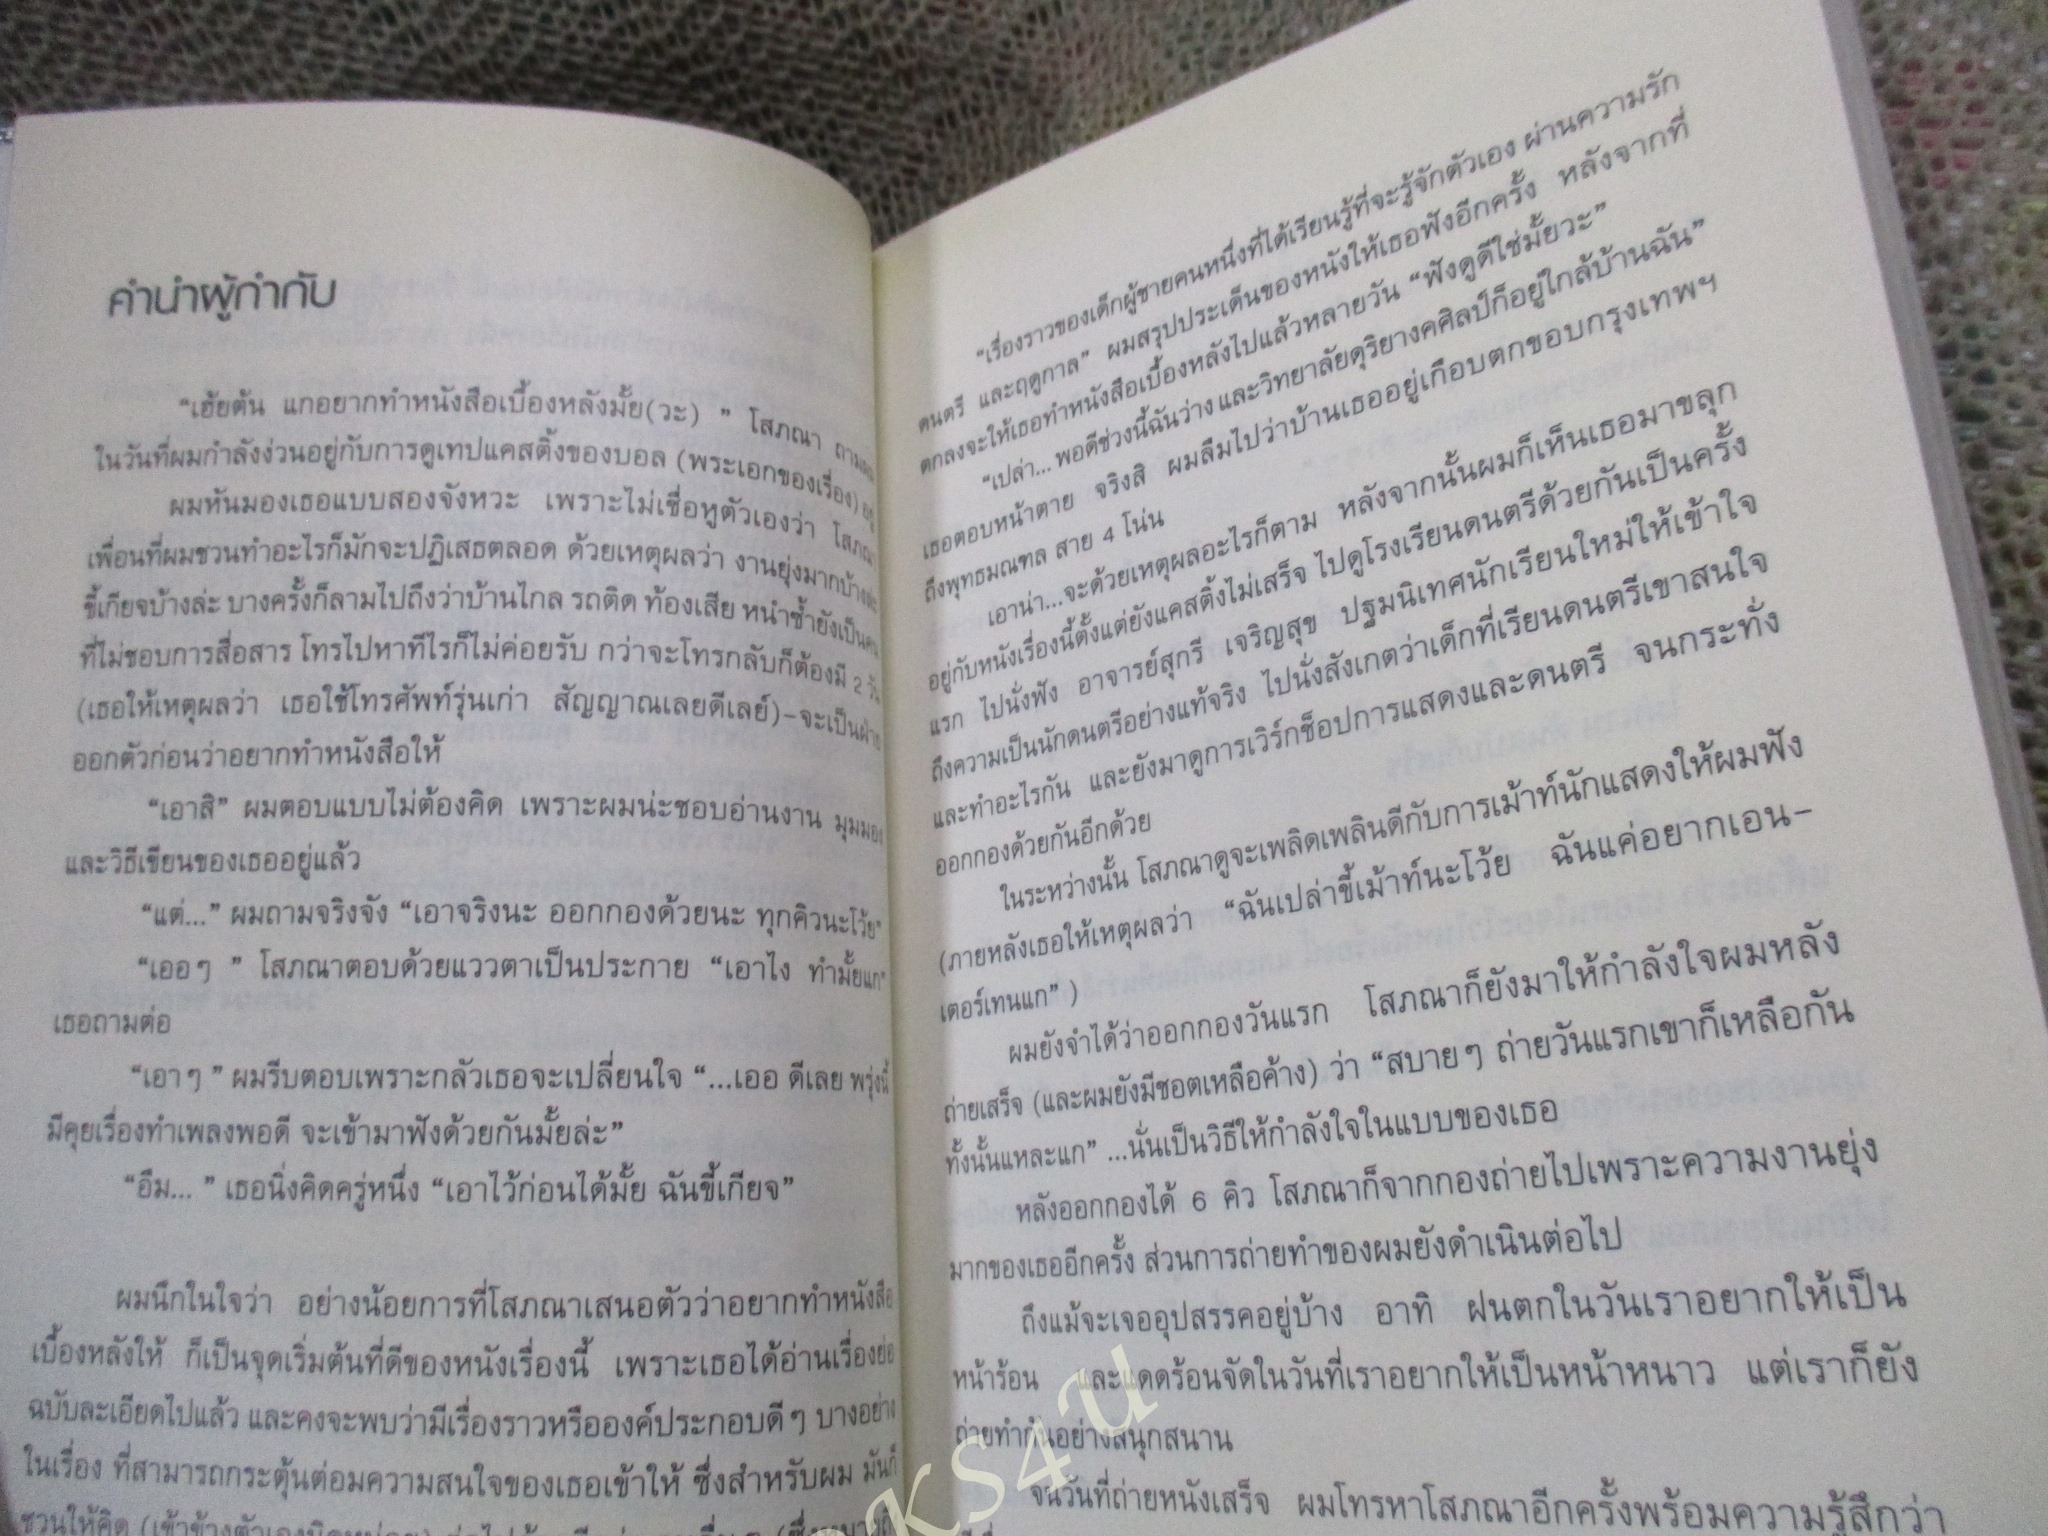 คำนำผู้กำกับ
“เฮ้ยต้น แกอยากทำหนังสือเบื้องหลังมั้ย(วะ) ” โสภณา ถามผม
ในวันที่ผมกำลังง่วนอยู่กับการดูเทปแคสติ้งของบอล (พระเอกของเรื่อง) อยู่
ผมหันมองเธอแบบสองจังหวะ เพราะไม่เชื่อหูตัวเองว่า โสภณา
เพื่อนที่ผมชวนทำอะไรก็มักจะปฏิเสธตลอด ด้วยเหตุผลว่า งานยุ่งมากบ้างล่ะ
ขี้เกียจบ้างล่ะ บางครั้งก็ลามไปถึงว่าบ้านไกล รถติด ท้องเสีย หนำซ้ำยังเป็นคน
ที่ไม่ชอบการสื่อสาร โทรไปหาทีไรก็ไม่ค่อยรับ กว่าจะโทรกลับก็ต้องมี 2 วัน
(เธอให้เหตุผลว่า เธอใช้โทรศัพท์รุ่นเก่า สัญญาณเลยดีเลย์)-จะเป็นฝ่าย
ออกตัวก่อนว่าอยากทำหนังสือให้
“เอาสิ” ผมตอบแบบไม่ต้องคิด เพราะผมน่ะชอบอ่านงาน มุมมอง
และวิธีเขียนของเธออยู่แล้ว
“แต่...” ผมถามจริงจัง “เอาจริงนะ ออกกองด้วยนะ ทุกคิวนะโว้ย”
“เออๆ ” โสภณาตอบด้วยแววตาเป็นประกาย “เอาไง ทำมั้ยแก”
เธอถามต่อ
“เอาๆ ” ผมรีบตอบเพราะกลัวเธอจะเปลี่ยนใจ “...เออ ดีเลย พรุ่งนี้
มีคุยเรื่องทำเพลงพอดี จะเข้ามาฟังด้วยกันมั้ยล่ะ”
“อืม... ” เธอนิ่งคิดครู่หนึ่ง “เอาไว้ก่อนได้มั้ย ฉันขี้เกียจ”
ผมนึกในใจว่า อย่างน้อยการที่โสภณาเสนอตัวว่าอยากทำหนังสือ
เบื้องหลังให้ ก็เป็นจุดเริ่มต้นที่ดีของหนังเรื่องนี้ เพราะเธอได้อ่านเรื่องย่อ
ฉบับละเอียดไปแล้ว และคงจะพบว่ามีเรื่องราวหรือองค์ประกอบดีๆ บางอย่าง
ในเรื่อง ที่สามารถกระตุ้นต่อมความสนใจของเธอเข้าให้ ซึ่งสำหรับผม มันก็
ชวนให้คิด (เข้าข้างตัวเองนิดหน่อย)
“เรื่องราวของเด็กผู้ชายคนหนึ่งที่ได้เรียนรู้ที่จะรู้จักตัวเอง ผ่านความรัก
ดนตรี และฤดูกาล” ผมสรุปประเด็นของหนังให้เธอฟังอีกครั้ง หลังจากที่
ตกลงจะให้เธอทำหนังสือเบื้องหลังไปแล้วหลายวัน “ฟังดูดีใช่มั้ยวะ”
“เปล่า... พอดีช่วงนี้ฉันว่าง และวิทยาลัยดุริยางคศิลป์ก็อยู่ใกล้บ้านฉัน”
เธอตอบหน้าตาย จริงสิ ผมลืมไปว่าบ้านเธออยู่เกือบตกขอบกรุงเทพฯ
ถึงพุทธมณฑล สาย 4 โน่น
เอาน่า...จะด้วยเหตุผลอะไรก็ตาม หลังจากนั้นผมก็เห็นเธอมาขลุก
อยู่กับหนังเรื่องนี้ตั้งแต่ยังแคสติ้งไม่เสร็จ ไปดูโรงเรียนดนตรีด้วยกันเป็นครั้ง
แรก ไปนั่งฟัง อาจารย์สุกรี เจริญสุข ปฐมนิเทศนักเรียนใหม่ให้เข้าใจ
ถึงความเป็นนักดนตรีอย่างแท้จริง ไปนั่งสังเกตว่าเด็กที่เรียนดนตรีเขาสนใจ
และทำอะไรกัน และยังมาดูการเวิร์กช็อปการแสดงและดนตรี จนกระทั่ง
ออกกองด้วยกันอีกด้วย
ในระหว่างนั้น โสภณาดูจะเพลิดเพลินดีกับการเม้าท์นักแสดงให้ผมฟัง
(ภายหลังเธอให้เหตุผลว่า “ฉันเปล่าขี้เม้าท์นะโว้ย ฉันแค่อยากเอน-
เตอร์เทนแก” )
ผมยังจำได้ว่าออกกองวันแรก โสภณาก็ยังมาให้กำลังใจผมหลัง
ถ่ายเสร็จ (และผมยังมีชอตเหลือค้าง) ว่า “สบายๆ ถ่ายวันแรกเขาก็เหลือกัน
ทั้งนั้นแหละแก” ...นั่นเป็นวิธีให้กำลังใจในแบบของเธอ
หลังออกกองได้ 6 คิว โสภณาก็จากกองถ่ายไปเพราะความงานยุ่ง
มากของเธออีกครั้ง ส่วนการถ่ายทำของผมยังดำเนินต่อไป
ถึงแม้จะเจออุปสรรคอยู่บ้าง อาทิ ฝนตกในวันเราอยากให้เป็น
หน้าร้อน และแดดร้อนจัดในวันที่เราอยากให้เป็นหน้าหนาว แต่เราก็ยัง
ถ่ายทำกันอย่างสนุกสนาน
จนวันที่ถ่ายหนังเสร็จ ผมโทรหาโสภณาอีกครั้งพร้อมความรู้สึกว่า
ks4u